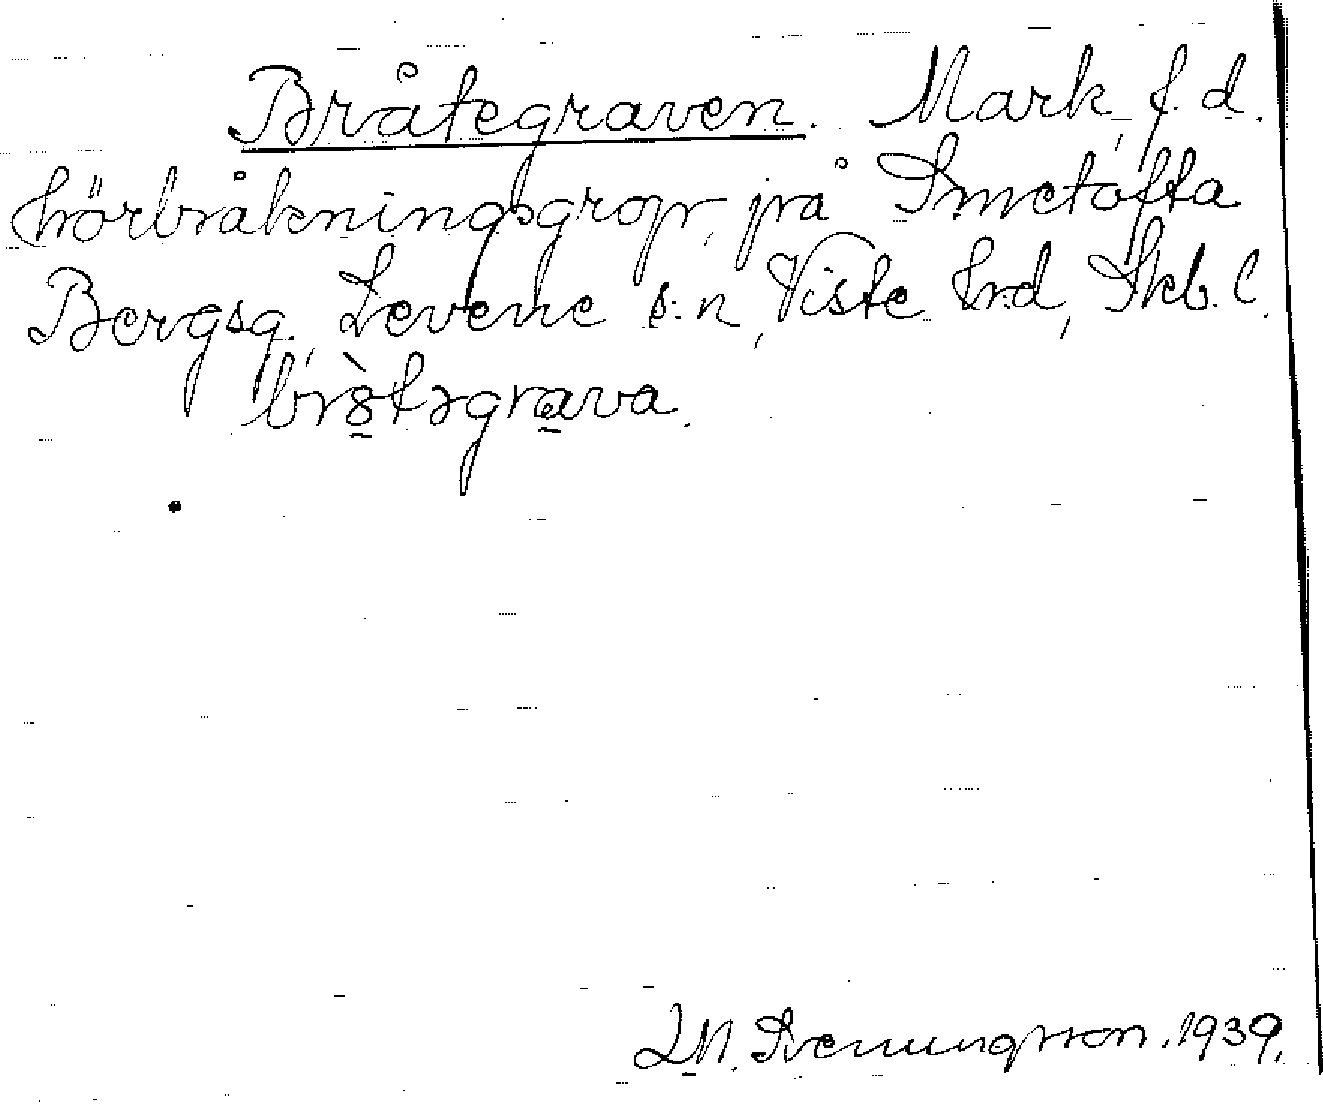 Bråtegraven. Mark, f.d.
hörbråkningsgrop, på Smetofta
Bergsg. Levene s:n, Viste hrd, Skb. l.
brs̲̀təgra̲va.
L M. Svenungsson. 1939.